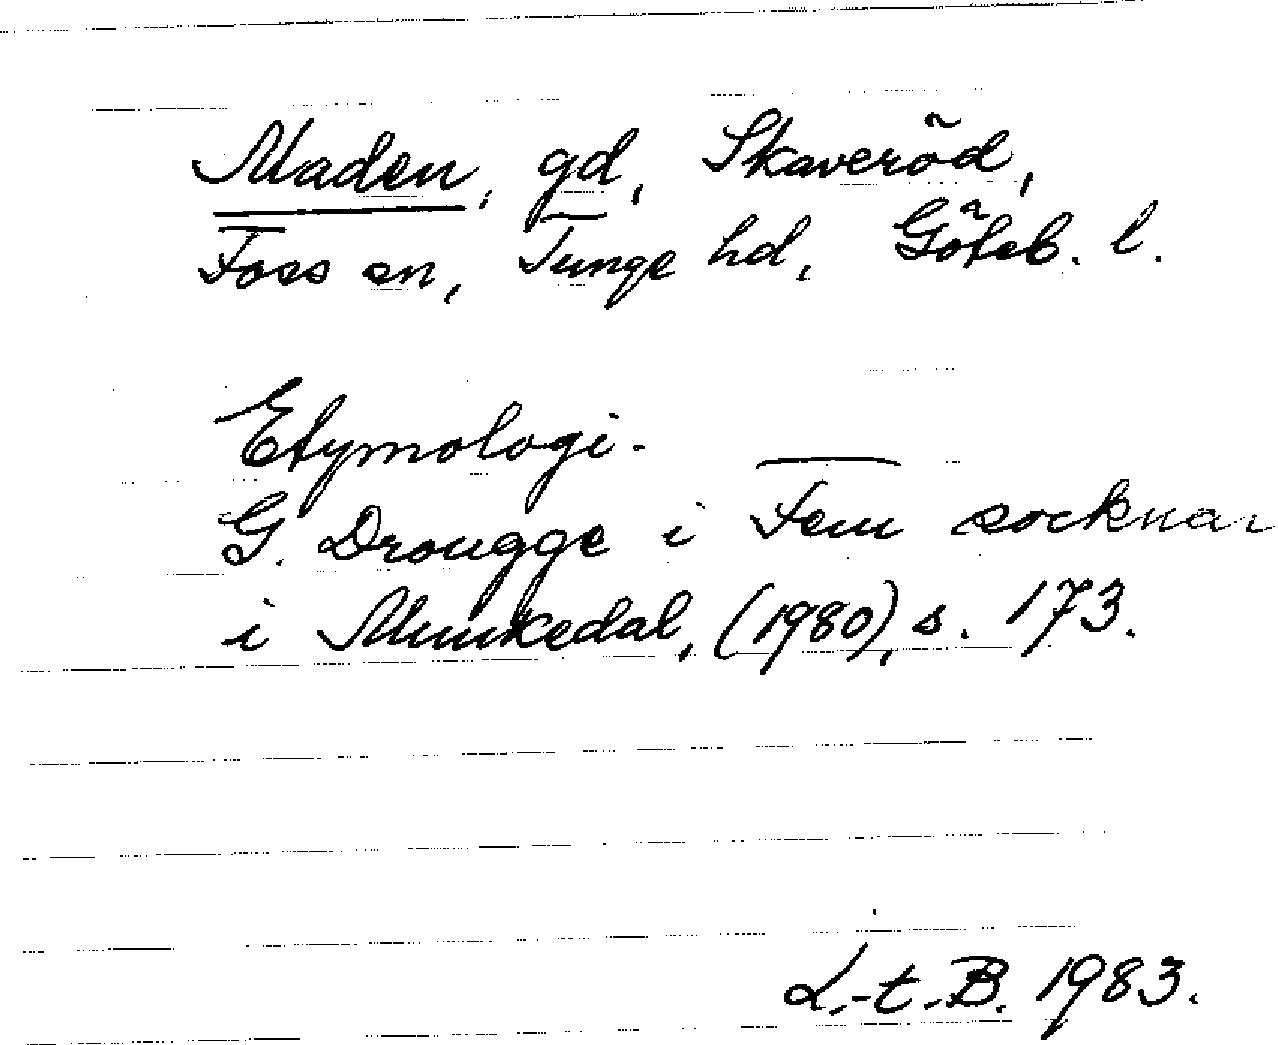 Maden, gd, Skaveröd,
Foss sn, Tunge hd, Göteb. l.
Etymologi.
G. Drougge i Fem socknar
i Munkedal, (1980), s. 173.
L.-t.-B. 1983.